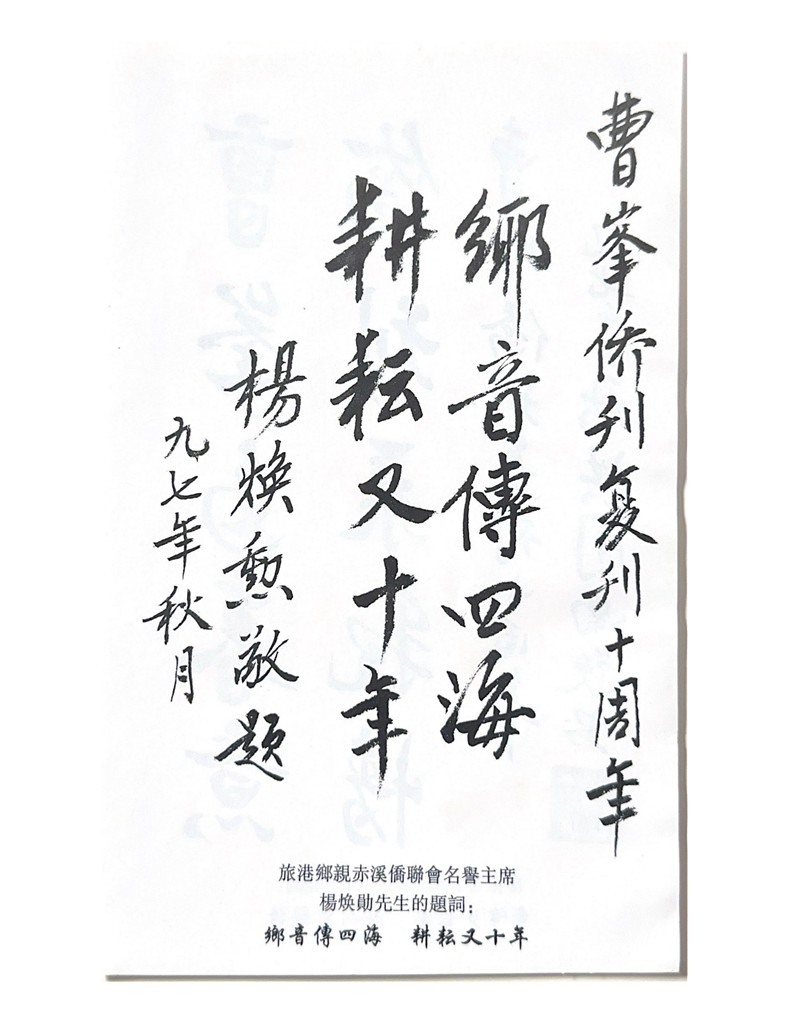 曹峯侨刊复刊十周年
鄉音傳四海
耕耘又十年
楊焕勲敬題
九七年秋月
旅港鄉親赤溪僑聯會名譽主席
楊焕勛先生的題詞：
鄉音傳四海　耕耘又十年